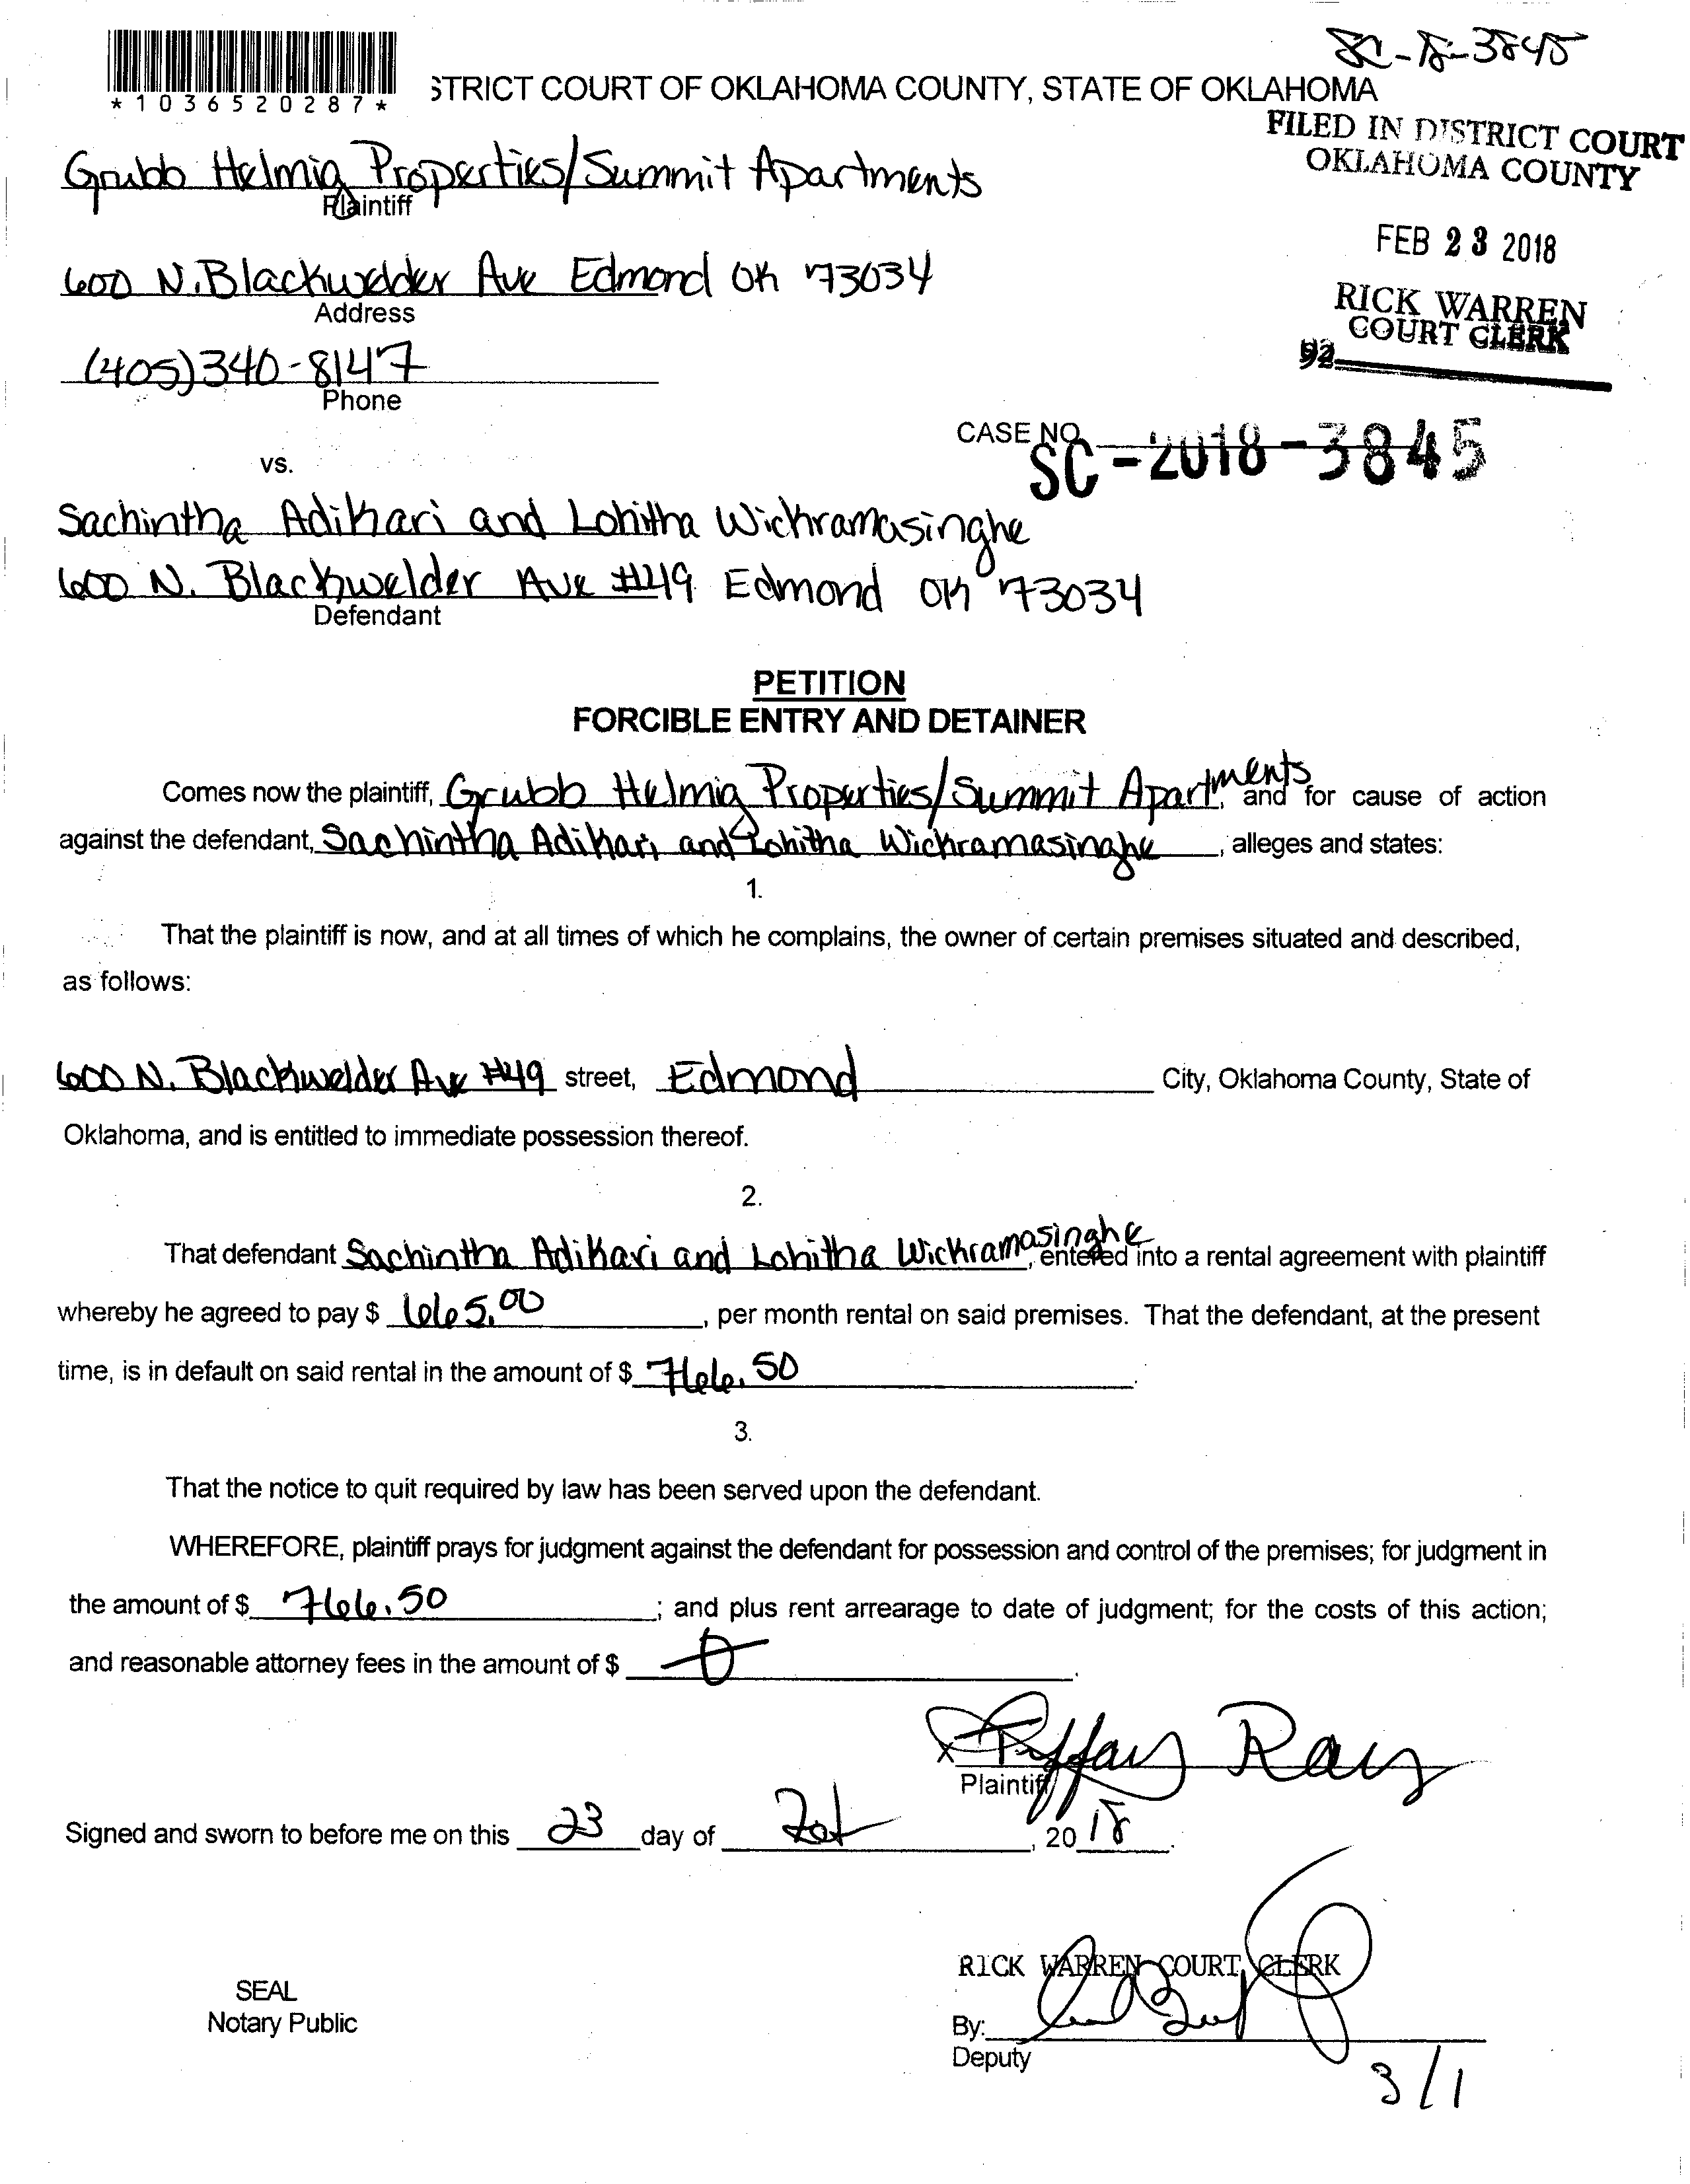 SC-18-3845
*1036520287*
STRICT COURT OF OKLAHOMA COUNTY, STATE OF OKLAHOMA
FILED IN DISTRICT COURT
OKLAHOMA COUNTY
Grubb Helmig Properties/Summit Apartments
Plaintiff
FEB 23 2018
600 N. Blackwelder Ave Edmond OK 73034
Address
RICK WARREN
COURT CLERK
92
(405)340-8147
Phone
CASE NO.
SC-2018-3845
vs.
Sachintha Adikari and Lohitha Wickramasinghe
600 N. Blackwelder Ave #49 Edmond OK 73034
Defendant
PETITION
FORCIBLE ENTRY AND DETAINER
Comes now the plaintiff, Grubb Helmig Properties/Summit Apartments, and for cause of action
against the defendant, Sachintha Adikari and Lohitha Wickramasinghe, alleges and states:
1.
That the plaintiff is now, and at all times of which he complains, the owner of certain premises situated and described,
as follows:
600 N. Blackwelder Ave #49 street, Edmond City, Oklahoma County, State of
Oklahoma, and is entitled to immediate possession thereof.
2.
That defendant Sachintha Adikari and Lohitha Wickramasinghe, entered into a rental agreement with plaintiff
whereby he agreed to pay $ 665.00, per month rental on said premises. That the defendant, at the present
time, is in default on said rental in the amount of $ 766.50.
3.
That the notice to quit required by law has been served upon the defendant.
WHEREFORE, plaintiff prays for judgment against the defendant for possession and control of the premises; for judgment in
the amount of $ 766.50; and plus rent arrearage to date of judgment; for the costs of this action;
and reasonable attorney fees in the amount of $ 0.
x Tiffany Ray
Plaintiff
Signed and sworn to before me on this 23 day of Feb, 2018.
RICK WARREN COURT CLERK
SEAL
Notary Public
By:
Deputy
3/1